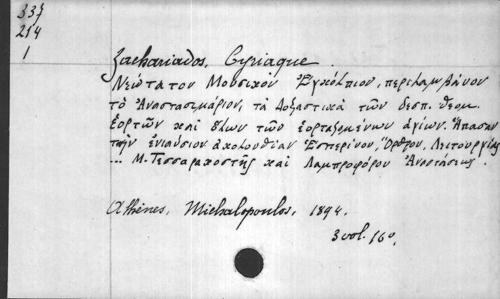 337
214
1
Zachariados, Cyriaque.
Νεώτατον Μουσικόν Ἐγκόλπιον, περιλαμβάνον
τὸ Ἀναστασιμάριον, τὰ Δοξαστικά τῶν δεσπ. θεομ.
ἑορτῶν καὶ ὅλων τῶν ἑορταζομένων ἁγίων. Ἅπασαν
τὴν ἐνιαύσιον ἀκολουθίαν Ἑσπερινοῦ, Ὄρθρου, Λειτουργίας
... Μ. Τεσσαρακοστῆς καὶ Λαμπροφόρου Ἀναστάσεως.
Athènes, Michalopoulos, 1894.
3 vol. 16°.